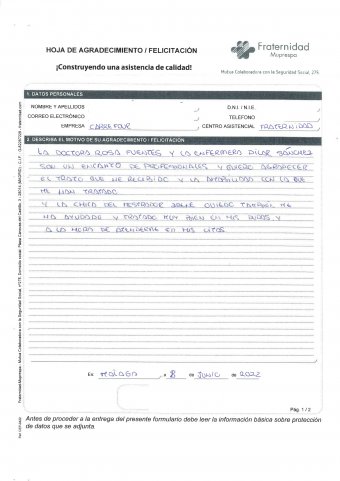 HOJA DE AGRADECIMIENTO / FELICITACIÓN
¡Construyendo una asistencia de calidad!
Fraternidad
Muprespa
Mutua Colaboradora con la Seguridad Social, 275
1. DATOS PERSONALES
NOMBRE Y APELLIDOS D.N.I. / N.I.E.
CORREO ELECTRÓNICO TELÉFONO
EMPRESA CARREFOUR CENTRO ASISTENCIAL FRATERNIDAD
2. DESCRIBA EL MOTIVO DE SU AGRADECIMIENTO / FELICITACIÓN
LA DOCTORA ROSA FUENTES Y LA ENFERMERA PILAR SÁNCHEZ
SON UN ENCANTO DE PROFESIONALES Y QUIERO AGRADECER
EL TRATO QUE HE RECIBIDO Y LA AMABILIDAD CON LA QUE
ME HAN TRATADO
Y LA CHICA DEL MOSTRADOR OVIEDO TAMBIÉN ME
HA AYUDADO Y TRATADO MUY BIEN EN MIS DUDAS Y
A LA HORA DE ATENDERME EN MIS CITAS.
En MÁLAGA, a 8 de JUNIO de 2022
Pág. 1 / 2
Antes de proceder a la entrega del presente formulario debe leer la información básica sobre protección
de datos que se adjunta.